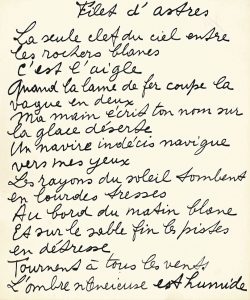 Filet d'astres
La seule clef du ciel entre
les rochers blancs
c'est l'aigle
Quand la lame de fer coupe la
vague en deux
Ma main écrit ton nom sur
la glace déserte
Un navire indécis navigue
vers mes yeux
Les rayons du soleil tombent
en lourdes tresses
Au bord du matin blanc
Et sur le sable fin les pistes
en détresse
Tournent à tous les vents
L'ombre est humide